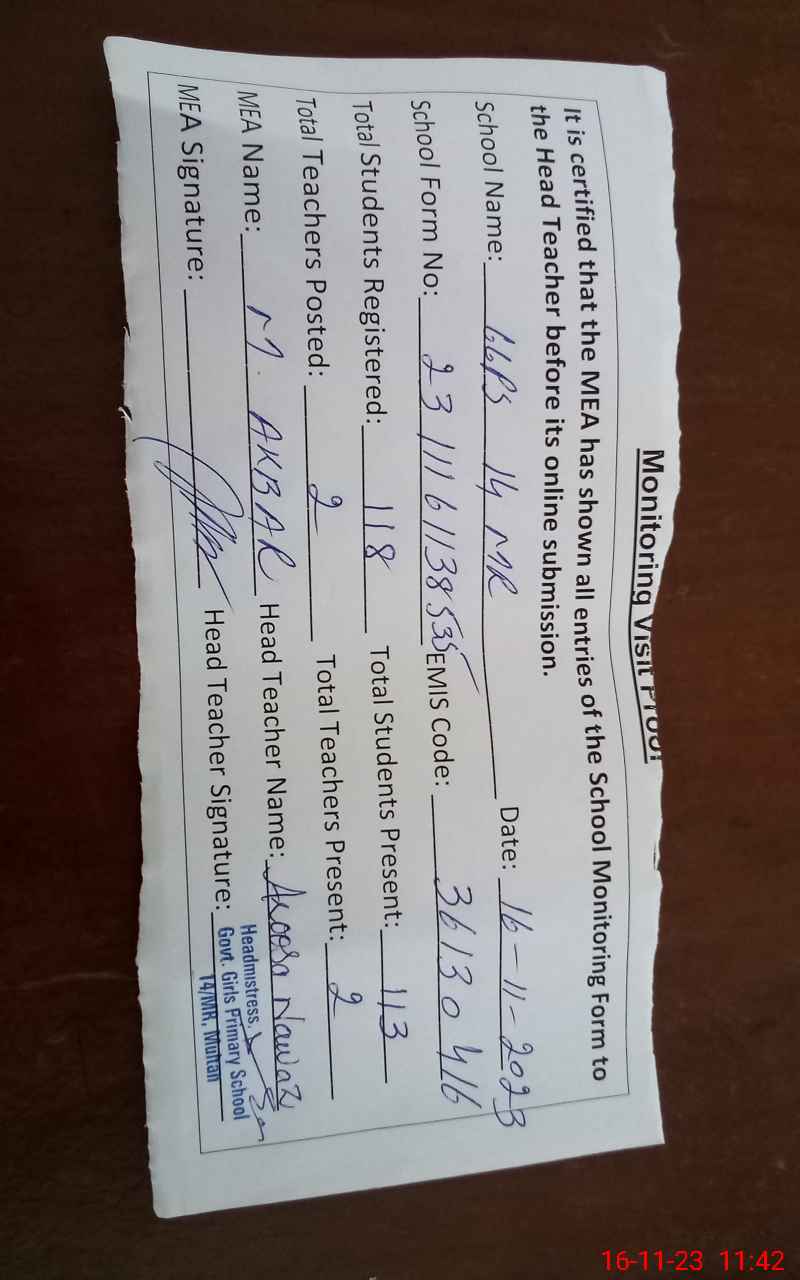 Monitoring Visit Proof
It is certified that the MEA has shown all entries of the School Monitoring Form to
the Head Teacher before its online submission.
School Name: GGPS 14 MR Date: 16-11-2023
School Form No: 2311161138535 EMIS Code: 36130416
Total Students Registered: 118 Total Students Present: 113
Total Teachers Posted: 2 Total Teachers Present: 2
MEA Name: M. AKBAR Head Teacher Name: Aroosa Nawaz
MEA Signature: Head Teacher Signature:
Headmistress.
Govt. Girls Primary School
14/MR. Multan
16-11-23 11:42